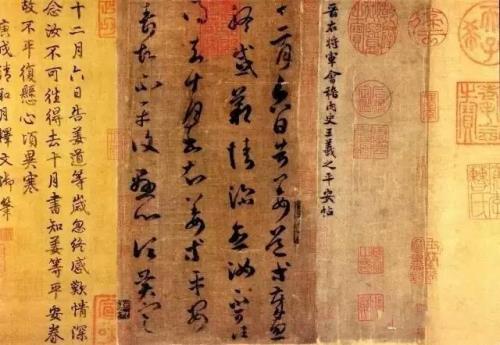 晉右將軍會稽內史王羲之平安帖
十二月六日告姜道等歲忽
終感歎情深念汝不可往
得去十月書知姜等平安
眷故不平復懸心頃異寒
十二月六日告姜道等歲忽終感歎情深
念汝不可徃得去十月書知姜等平安眷
故不平復懸心頃異寒
庚戌清和月釋文